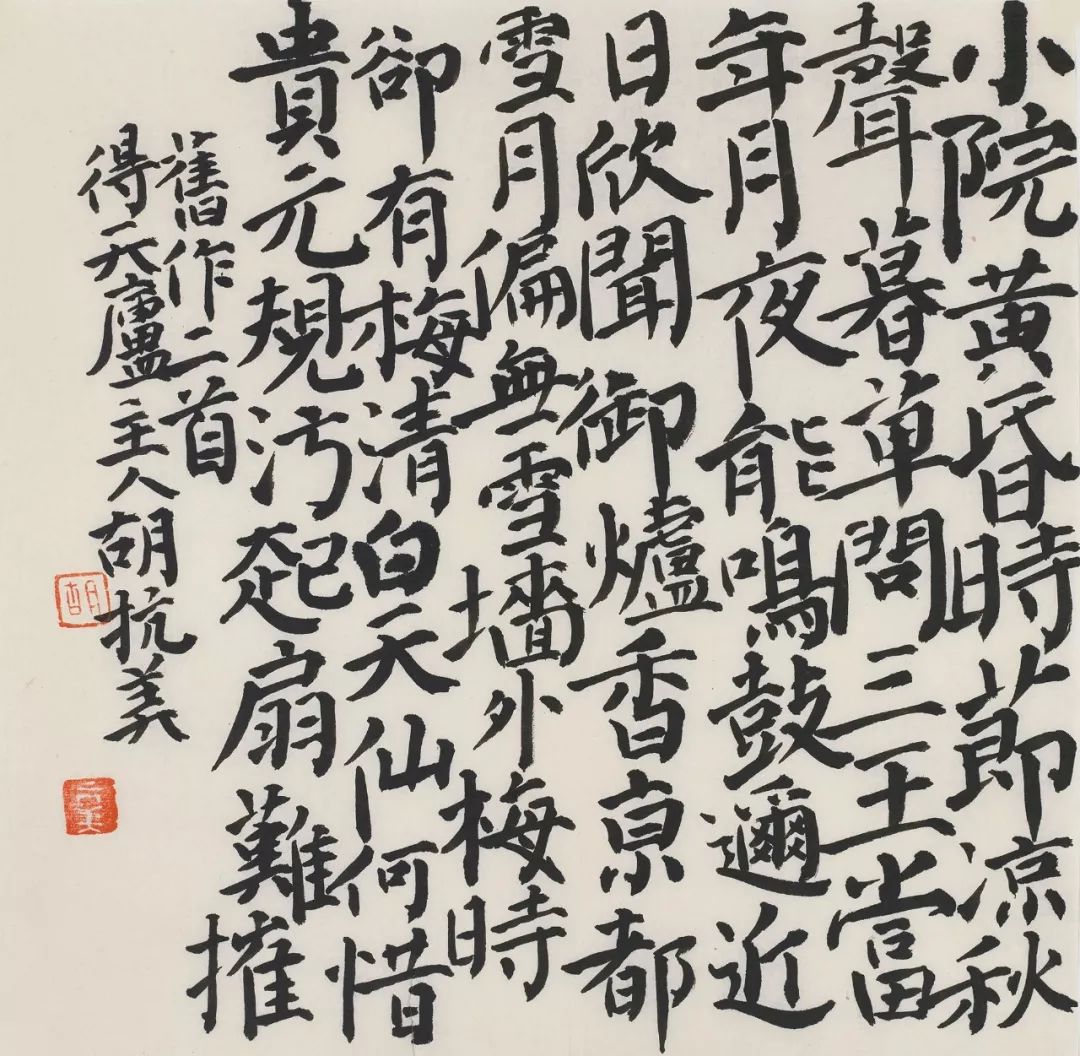 小院黄昏時節凉秋
聲暮單閣三王當
年月夜能鳴鼓邇近
日欣聞御爐香京都
雪月偏無雪墻外梅時
卻有梅清白天仙何惜
貴元規污起扇難摧
舊作二首
得天廬主人胡抗美
胡